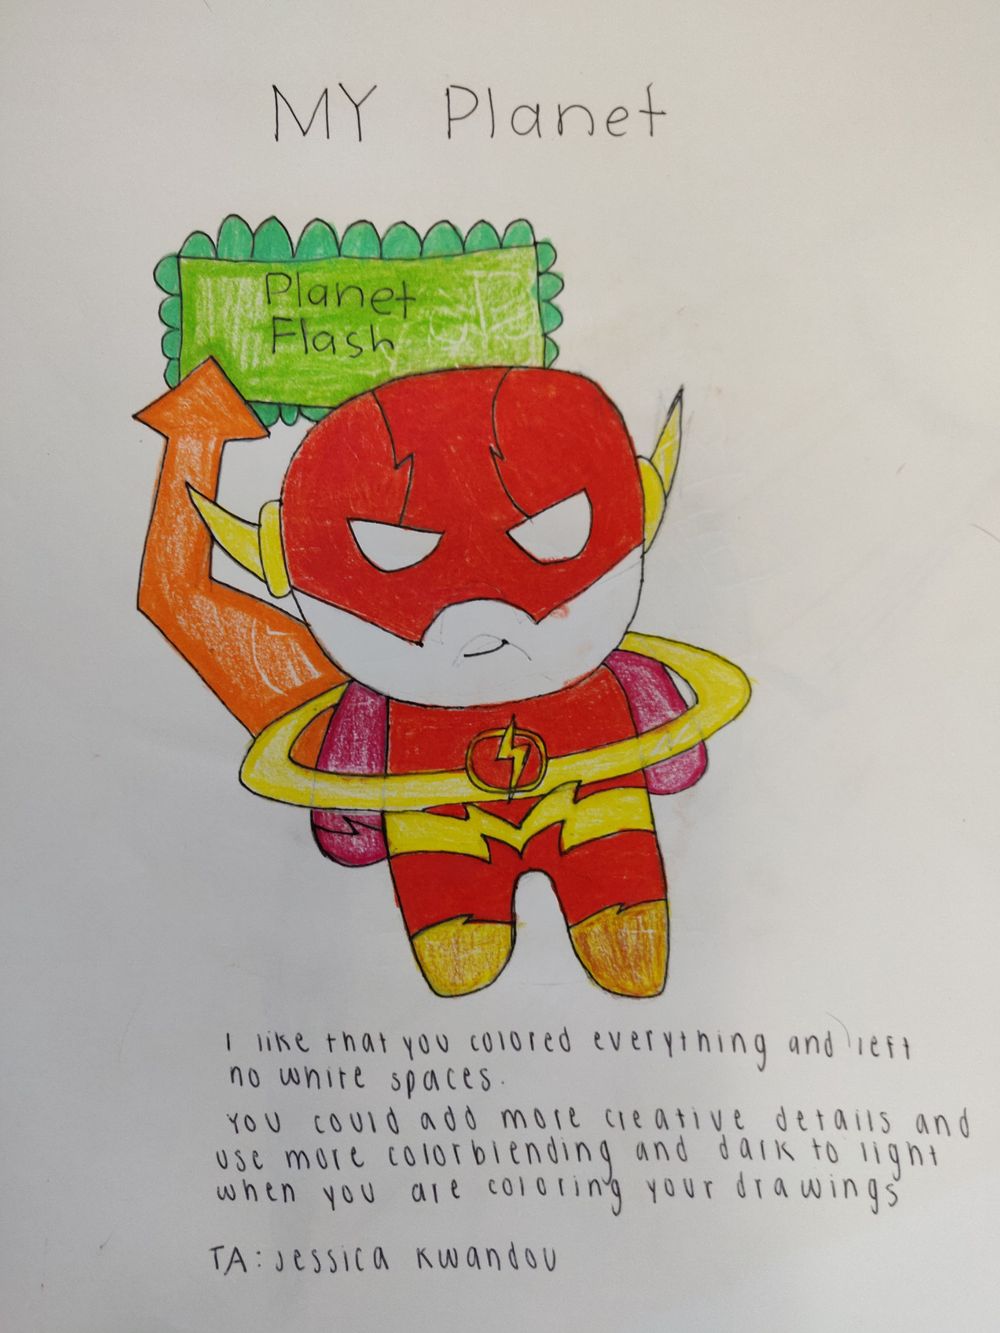 MY Planet
Planet
Flash
I like that you colored everything and left
no white spaces.
You could add more creative details and
use more colorblending and dark to light
when you are coloring your drawings
TA: Jessica Kwandou